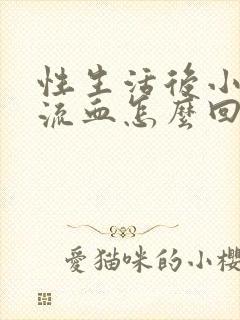 性生活後小
流血怎麼回
愛貓咪的小櫻